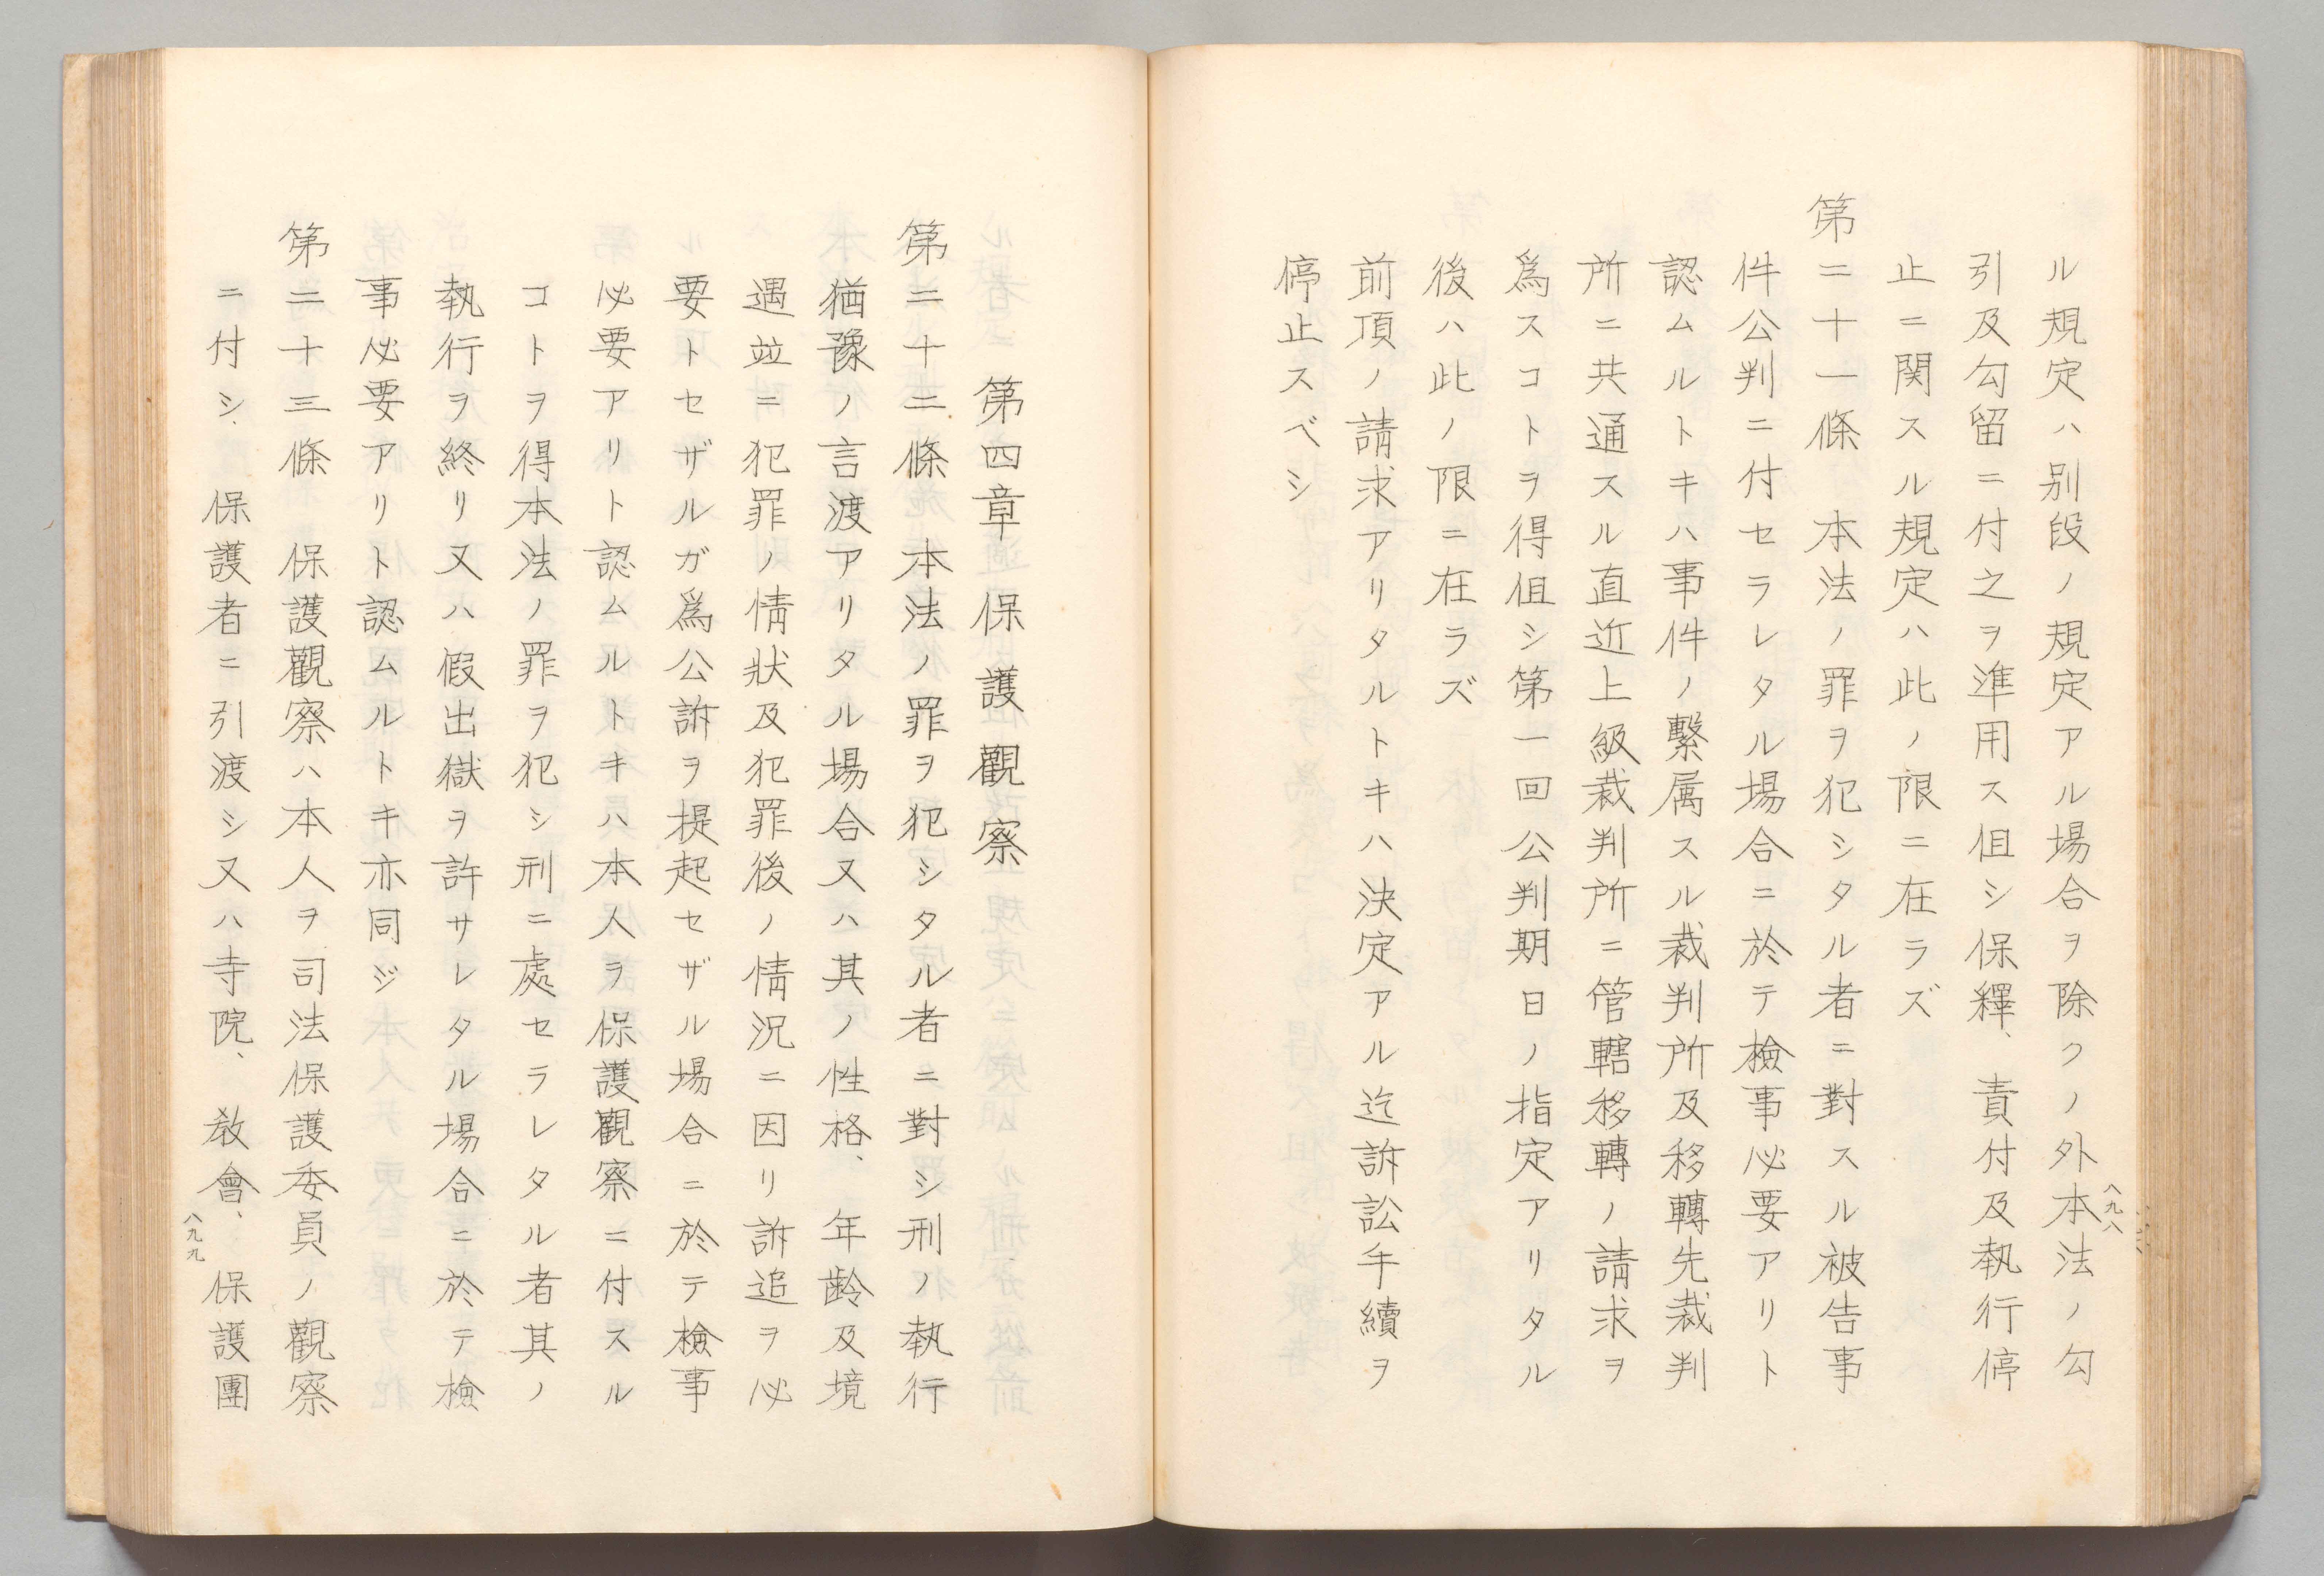 ル規定ハ別段ノ規定アル場合ヲ除クノ外本法ノ勾
引及勾留ニ付之ヲ準用ス但シ保釋、責付及執行停
止ニ関スル規定ハ此ノ限ニ在ラズ
第二十一條 本法ノ罪ヲ犯シタル者ニ對スル被告事
件公判ニ付セラレタル場合ニ於テ檢事必要アリト
認ムルトキハ事件ノ繫属スル裁判所及移轉先裁判
所ニ共通スル直近上級裁判所ニ管轄移轉ノ請求ヲ
爲スコトヲ得但シ第一回公判期日ノ指定アリタル
後ハ此ノ限ニ在ラズ
前項ノ請求アリタルトキハ決定アル迄訴訟手續ヲ
停止スベシ
八九八
第四章 保護觀察
第二十二條 本法ノ罪ヲ犯シタル者ニ對シ刑ノ執行
猶豫ノ言渡アリタル場合又ハ其ノ性格、年齢及境
遇竝ニ犯罪ノ情狀及犯罪後ノ情況ニ因リ訴追ヲ必
要トセザルガ爲公訴ヲ提起セザル場合ニ於テ檢事
必要アリト認ムルトキハ本人ヲ保護觀察ニ付スル
コトヲ得本法ノ罪ヲ犯シ刑ニ處セラレタル者其ノ
執行ヲ終リ又ハ假出獄ヲ許サレタル場合ニ於テ檢
事必要アリト認ムルトキ亦同ジ
第二十三條 保護觀察ハ本人ヲ司法保護委員ノ觀察
ニ付シ、保護者ニ引渡シ又ハ寺院、教會、保護團
八九九